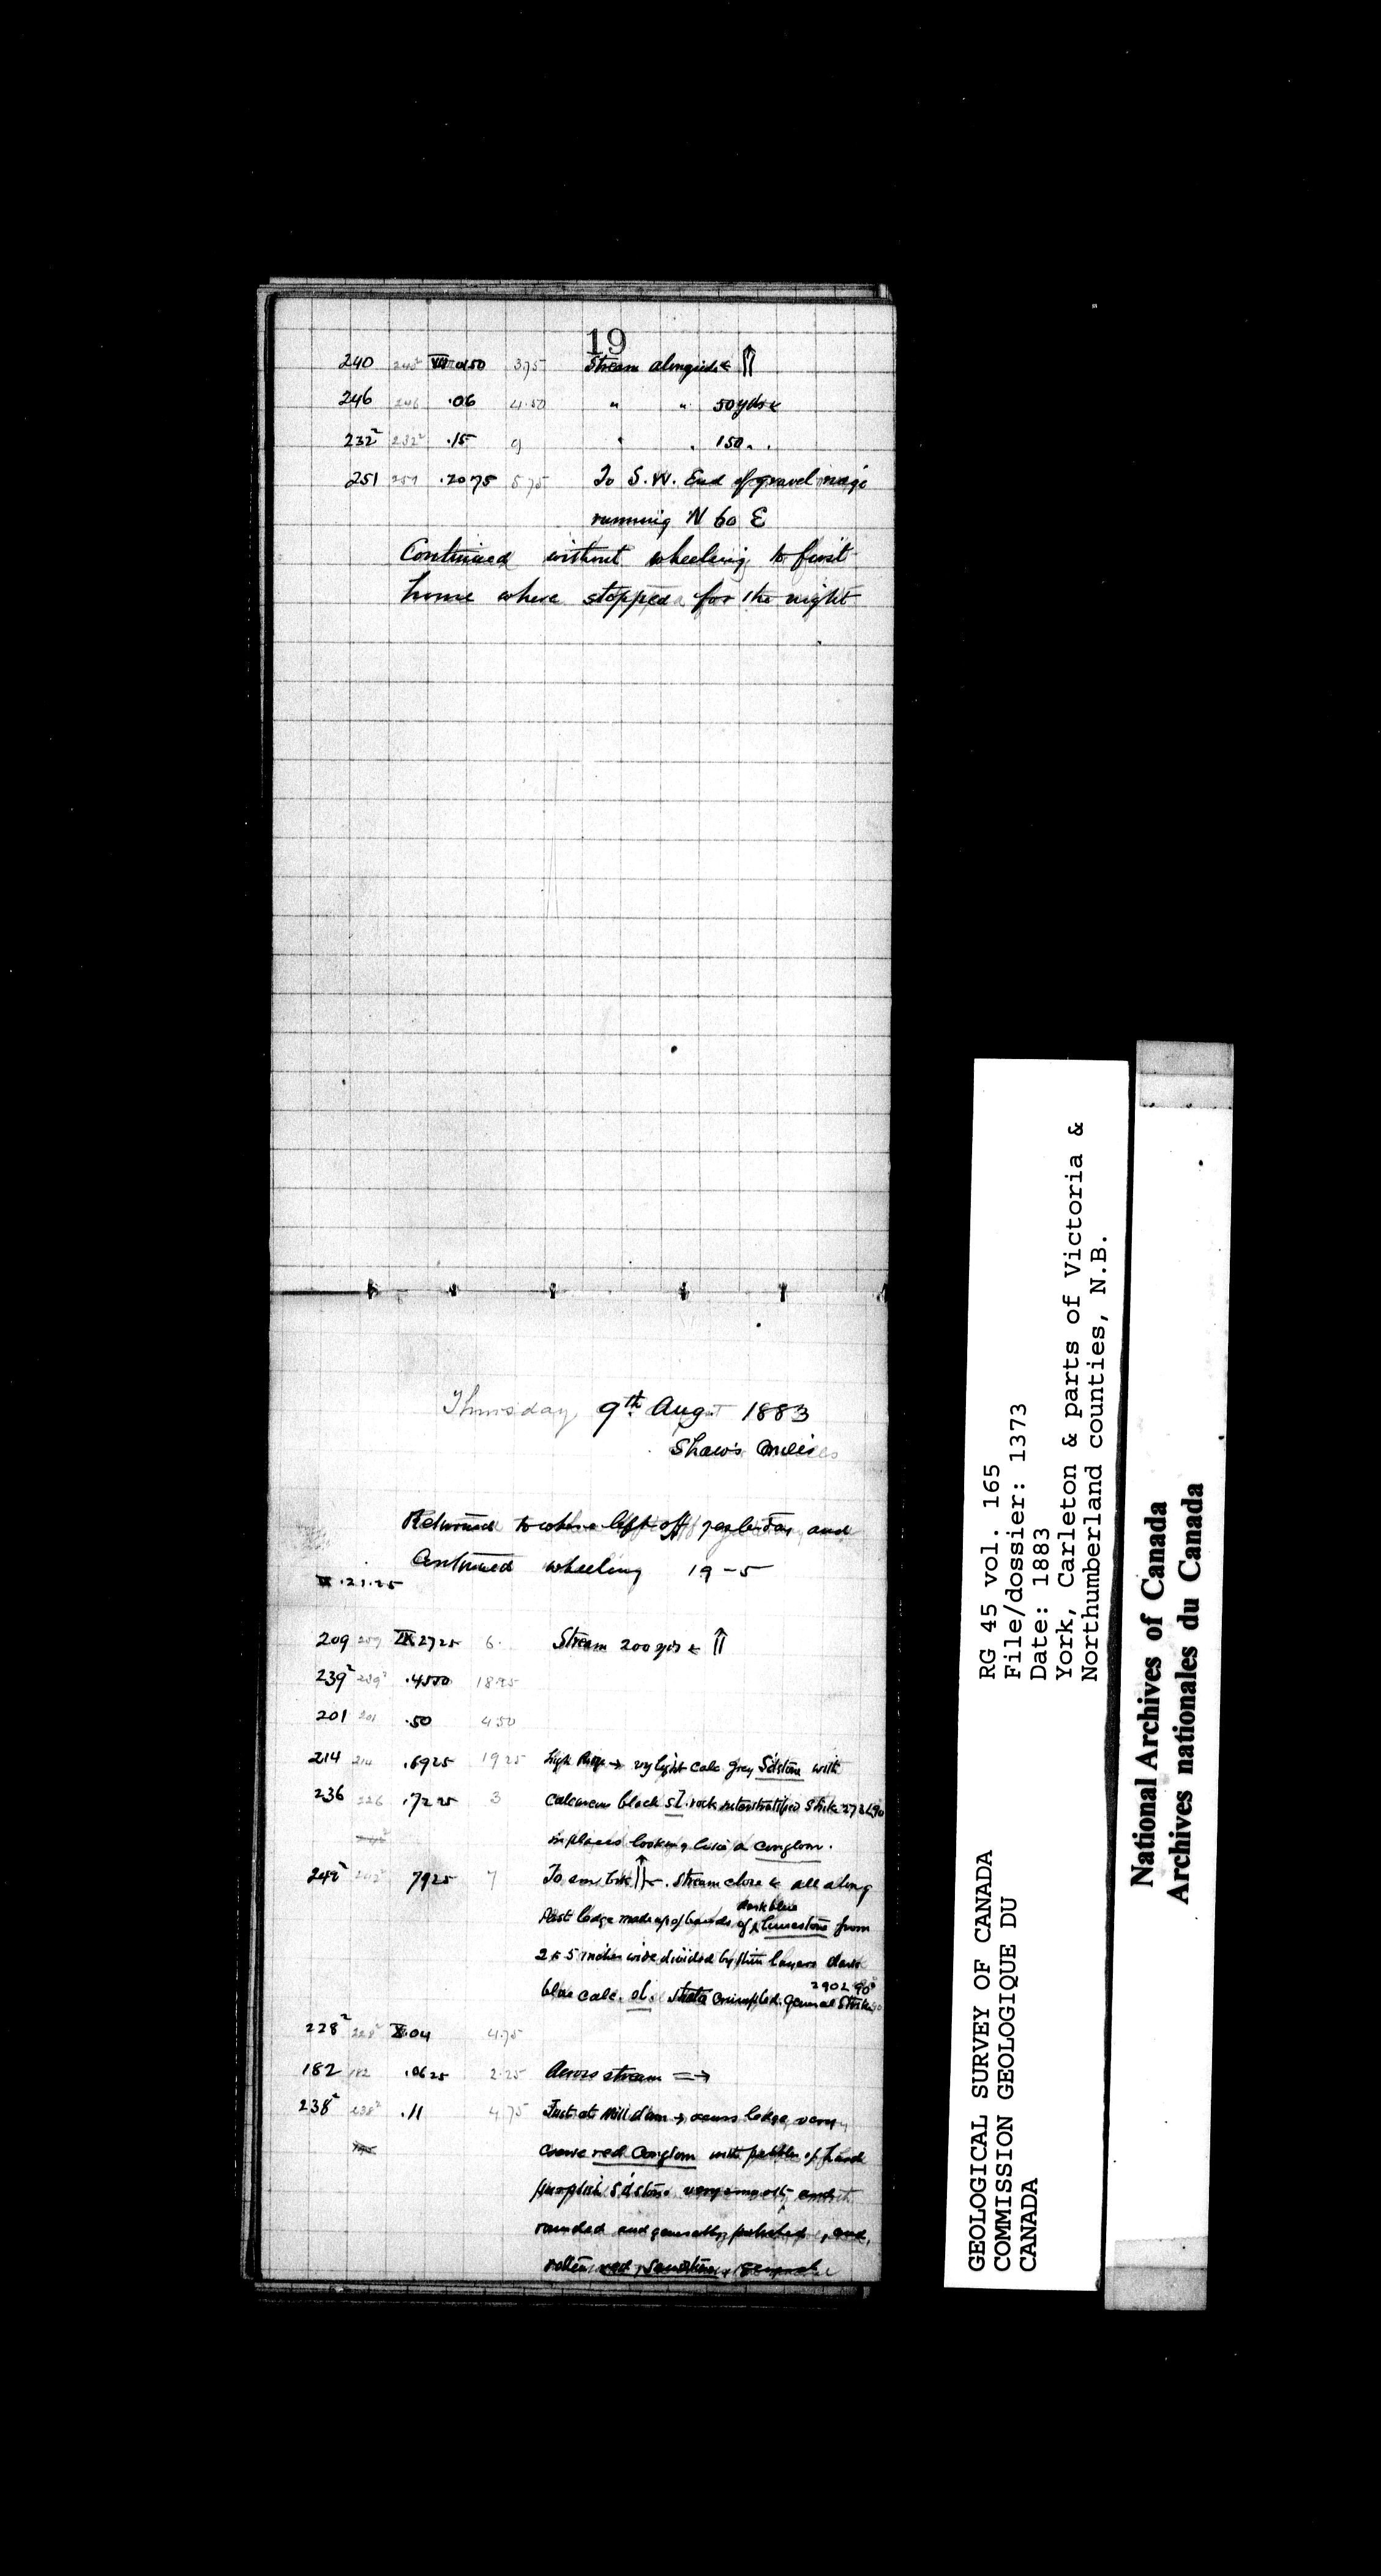 19
240 240² VIII 0150 3.75 Stream alongside ← ⇑
246 246 .06 4.50 " " 50 yds ←
232² 232² .15 9 " " 150 " "
251 251 .2075 5.75 To S.W. End of gravel
running N 60 E
Continued without wheeling to first
house where stopped for the night
Thursday 9th Aug. 1883
Shaw's
Returned to where left off yesterday and
Continued wheeling 19-5
.21.25
209 209 IX 2725 6. Stream 200 yds ← ⇑
239² 239² .4550
201 201 .50 4.50
214 214 .6925 19 25 High → light calc grey S'dstone with
236 .7225 3 black sl. rock interstratified Strike
in places looking like a conglom.
7925 7 To Stream close ← all along
dark blue
Past ledge made up of bands of limestone from
2 to 5 inches wide divided by thin layers dark
290 L 90°
blue calc. sl. Strata crumpled. general Strike
228² 228² X.04 4.75
182 182 .0625 2.25 Across stream ⇒
238² 238² .11 4.75 Just at Mill dam → ledge very
coarse red Conglom with pebbles of hard
purplish S'dstone very smooth and
rounded and generally polished, and
red
RG 45 vol. 165
File/dossier: 1373
Date: 1883
York, Carleton & parts of Victoria &
Northumberland counties, N.B.
GEOLOGICAL SURVEY OF CANADA
COMMISSION GEOLOGIQUE DU
CANADA
National Archives of Canada
Archives nationales du Canada